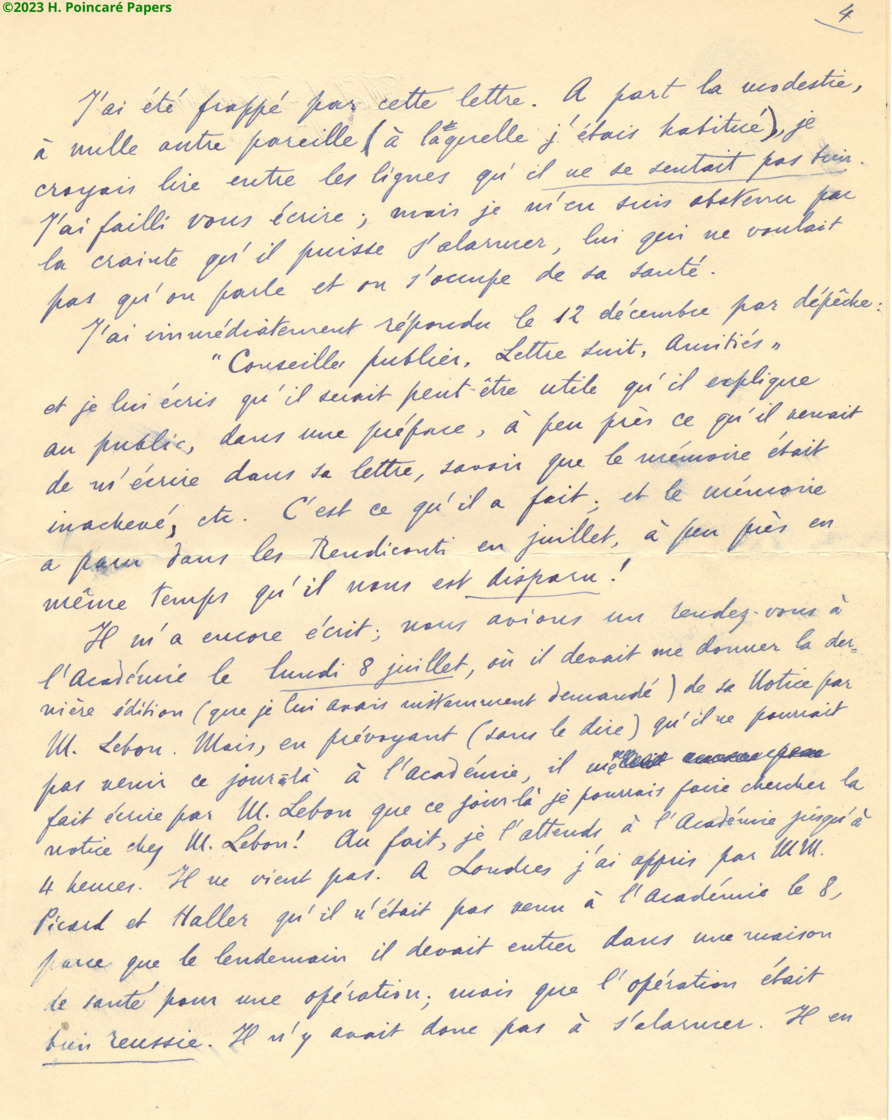 ©2023 H. Poincaré Papers
4
J'ai été frappé par cette lettre. A part la modestie,
à nulle autre pareille (à laquelle j'étais habitué), je
croyais lire entre les lignes qu'il ne se sentait pas bien.
J'ai failli vous écrire ; mais je m'en suis abstenu par
la crainte qu'il puisse s'alarmer, lui qui ne voulait
pas qu'on parle et on s'occupe de sa santé.
J'ai immédiatement répondu le 12 décembre par dépêche :
"Conseille publier, Lettre suit, Amitiés"
et je lui écris qu'il serait peut-être utile qu'il explique
au public, dans une préface, à peu près ce qu'il venait
de m'écrire dans sa lettre, savoir que le mémoire était
inachevé, etc. C'est ce qu'il a fait ; et le mémoire
a paru dans les Rendiconti en juillet, à peu près en
même temps qu'il nous est disparu !
Il m'a encore écrit ; nous avions un rendez-vous à
l'Académie le lundi 8 juillet, où il devait me donner la der-
nière édition (que je lui avais instamment demandé) de sa Notice par
M. Lebon. Mais, en prévoyant (sans le dire) qu'il ne pourrait
pas venir ce jour-là à l'Académie, il m'
fait écrire par M. Lebon que ce jour-là je pourrais faire chercher la
notice chez M. Lebon ! Au fait, je l'attends à l'Académie jusqu'à
4 heures. Il ne vient pas. A Londres j'ai appris par MM.
Picard et Haller qu'il n'était pas venu à l'Académie le 8,
parce que le lendemain il devait entrer dans une maison
de santé pour une opération ; mais que l'opération était
bien reussie. Il n'y avait donc pas à s'alarmer. Il en